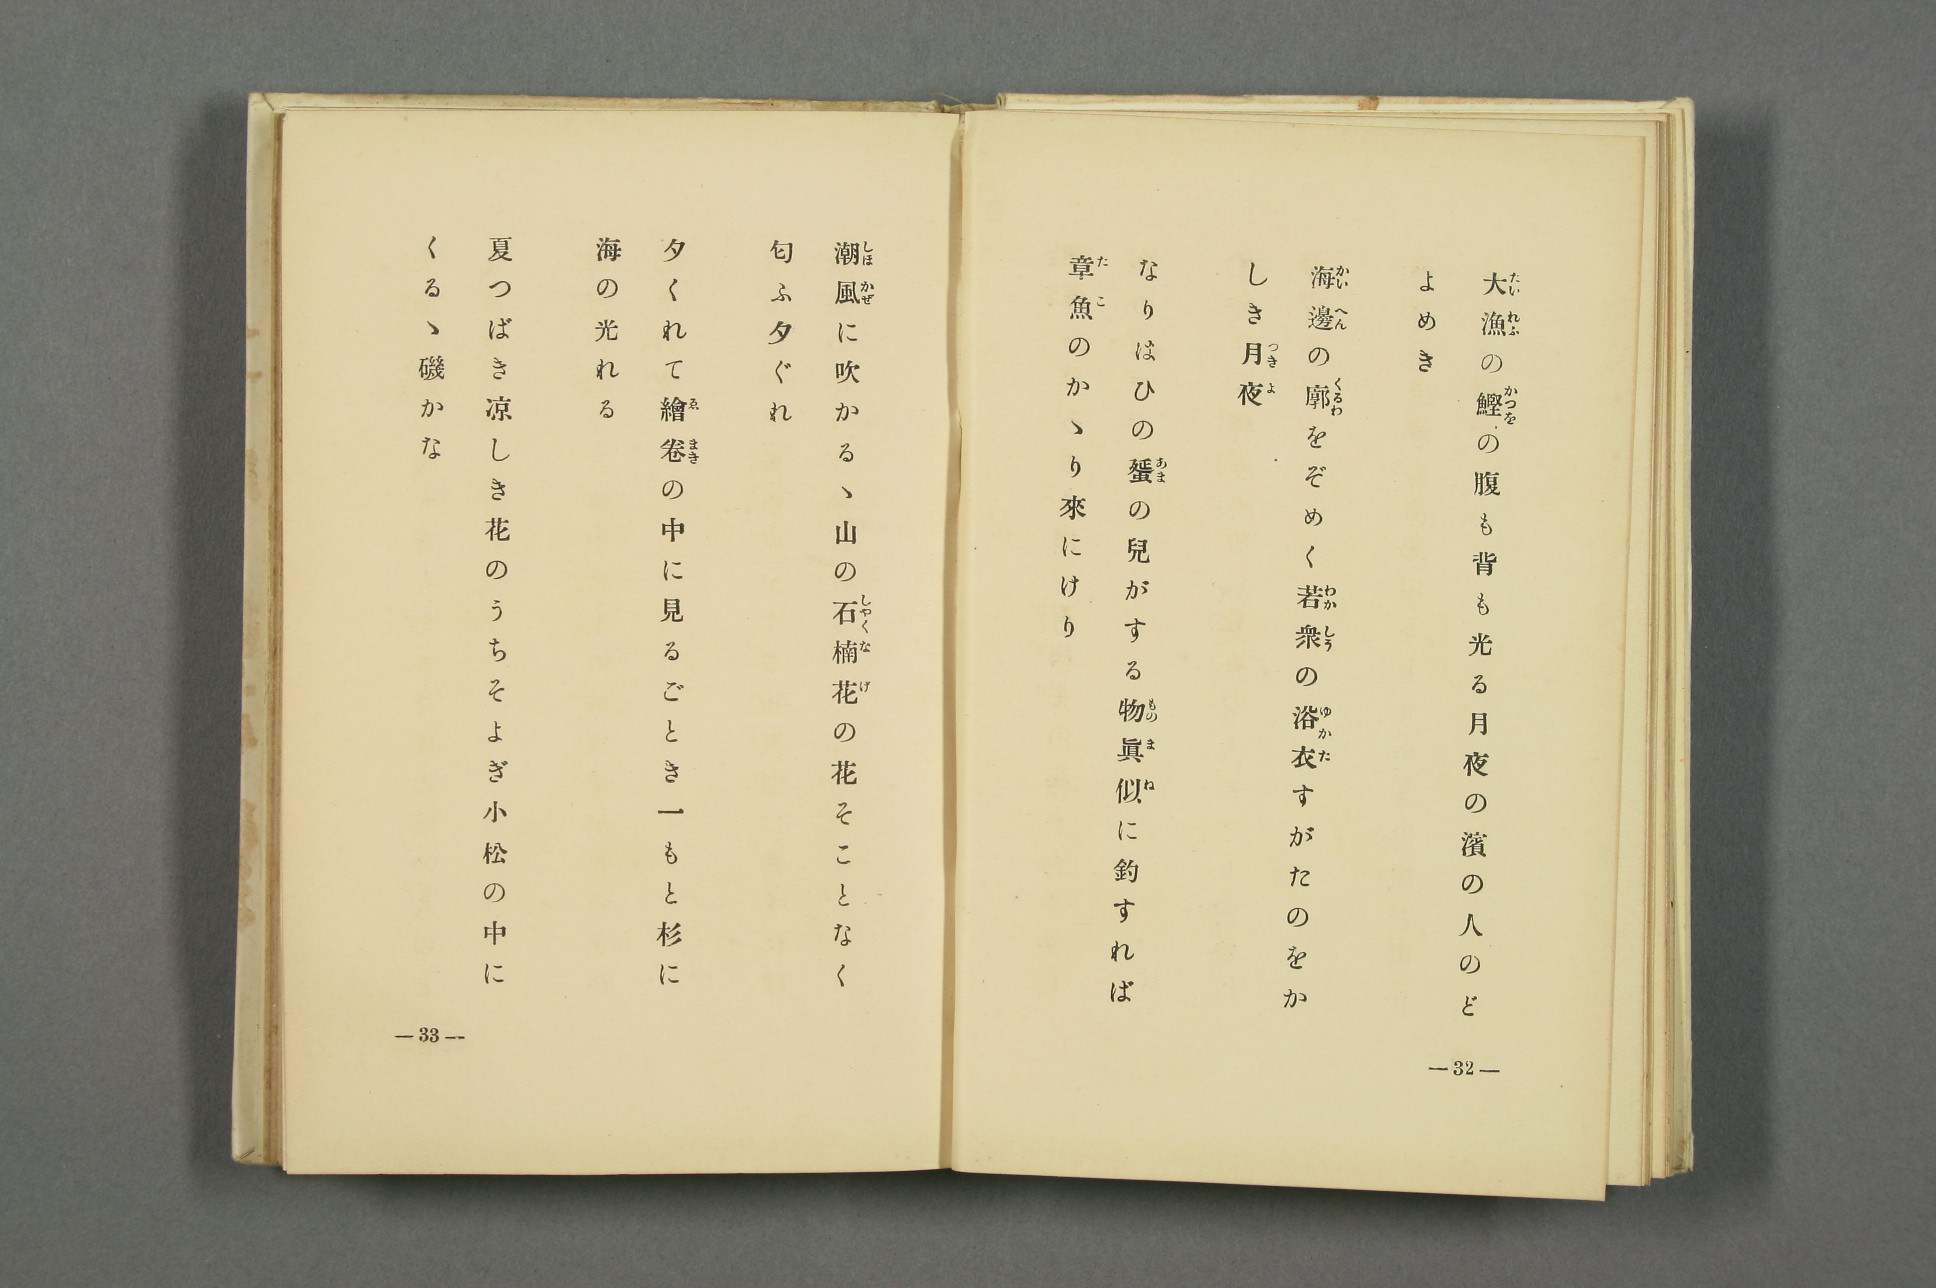 大漁の鰹の腹も背も光る月夜の濱の人のど
よめき
海邊の廓をぞめく若衆の浴衣すがたのをか
しき月夜
なりはひの蜑の兒がする物眞似に釣すれば
章魚のかゝり來にけり
— 32 —
潮風に吹かるゝ山の石楠花の花そことなく
匂ふ夕ぐれ
夕くれて繪卷の中に見るごとき一もと杉に
海の光れる
夏つばき凉しき花のうちそよぎ小松の中に
くるゝ磯かな
— 33 —